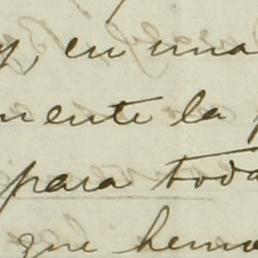 y, en una
mente la
para toda
que hemo